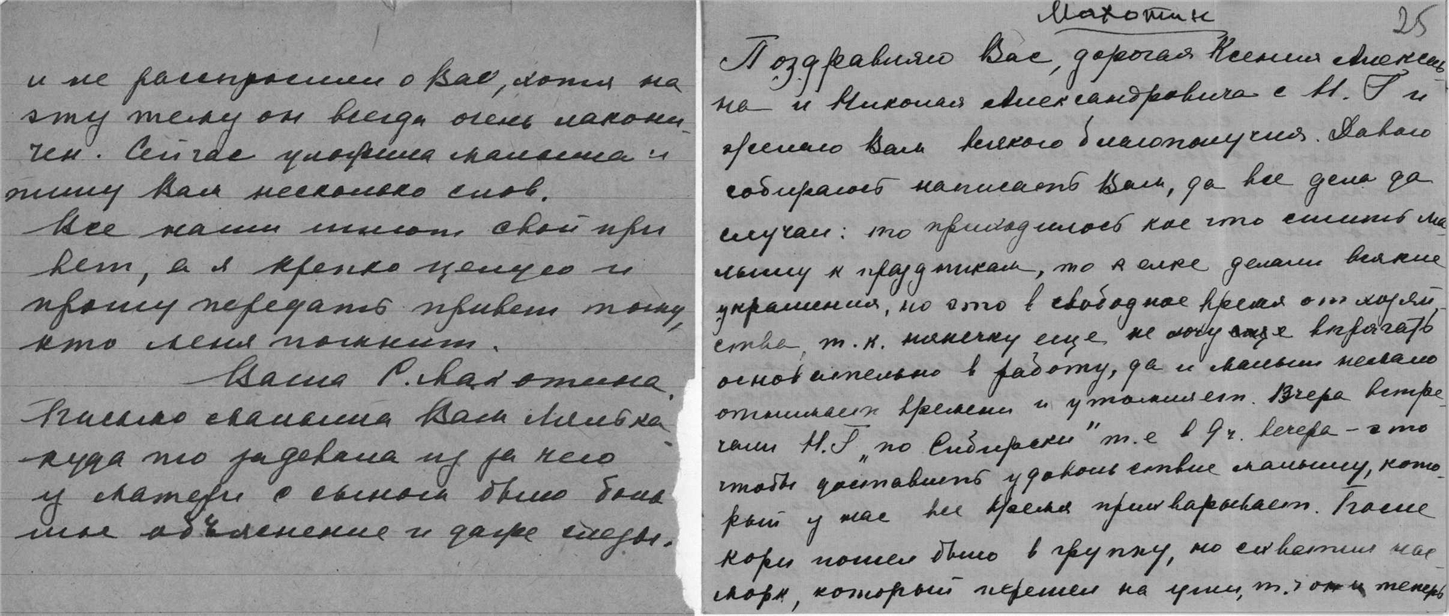 и не расспросили о Вас, хотя на
эту тему он всегда очень лакони-
чен. Сейчас уложила малыша и
пишу Вам несколько слов.
Все наши шлют свой при
вет, а я крепко целую и
прошу передать привет тому,
кто меня помнит.
Ваша С. Махотина.
Письмо малыша Вам Лялька
куда то задевала из за чего
у матери с сыном было боль
шое объяснение и даже слезы.
Махотин
25
Поздравляю Вас, дорогая Ксения Алексан-
на и Николая Александровича с Н. Г и
желаю Вам всякого благополучия. Давно
собираюсь написать Вам, да все дела да
случаи: то приходилось кое что сшить ма
лышу к праздникам, то к елке делали всякие
украшения, но это в свободное время от хозяй
ства, т. к. нянечку еще не хочу впрягать
основательно в работу, да и малыш немало
отнимает времени и утомляет. Вчера встре-
чали Н. Г „по Сибирски" т. е в 9 ч. вечера – это
чтобы доставить удовольствие малышу, кото-
рый у нас все время прихварывает. После
кори пошел было в группу, но схватил нас
морк, который перешел на уши, т. ч он и теперь